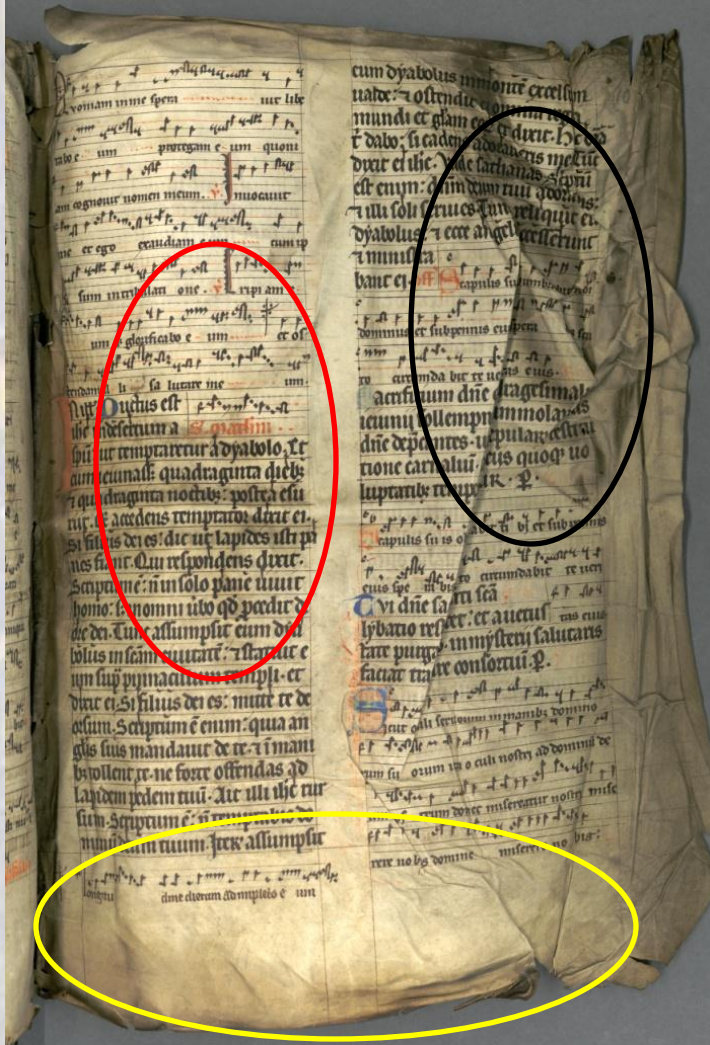 voniam in me spera uit libe
rabo e um protegam e um quoni
am cognouit nomen meum. v. Inuocauit
me et ego exaudiam e um cum ip
sum in tribulati one. v. Eripi am
um glorificabo e um et os
tendam il li sa lutare me um.
Ductus est
ihc in desertum a
spiritu ut temptaretur a dyabolo. Et
cum ieiunasset quadraginta dieb;
⁊ quadraginta noctib; postea esu
riit. Et accedens temptator dixit ei.
Si filius dei es: dic ut lapides isti pa
nes fiant. Qui respondens dixit.
Scriptum e: ñ in solo pane uiuit
homo: s; in omni ũbo qd pcedit d
ore dei. Tunc assumpsit eum dya
bolus in scam ciuitate: ⁊ statuit e
um sup pinnaculum templi. et
dixit ei. Si filius dei es: mitte te de
orsum. Scriptum e enim: quia an
glis suis mandauit de te. ⁊ in mani
b; tollent te. ne forte offendas ad
lapidem pedem tuũ. Ait illi ihc rur
sum. Scriptum e: ñ temptabis do
minũ deum tuum. Iterũ assumpsit
longitu dine dierum adimplebo e um
eum dyabolus in monte excelsum
ualde: ⁊ ostendit ei omnia regna
mundi et gliam eorum et dixit. Hec oia
t dabo: si cadens adoraueris me. Tunc
dixit ei ihc. Vade sathanas. Scptũ
est enim: dñm deum tuũ adorabis:
⁊ illi soli seruies. Tunc reliquit ei.
dyabolus. ⁊ ecce angeli accesserunt
⁊ ministra
bant ei. off Scapulis su
dominus et sub pennis eius spera
to circumda bit te ueritas eius.
Sacrificium dñe quadragesimal
ieiunii sollempniter immolamus
dñe depcantes. ut epularum
tione carnaliũ. eus quoq; uo
luptatib; temp P.
Scapulis su is o bit ti bi et sub pennis
eius spe ra bis to circumdabit te ueri
tas eius
lybatio restauret: et a uetus
tate purgatos in mysterii salutaris
faciat transire consortiũ. P.
Sicut oculi seruorum in manib; domino
rum su orum ita o culi nostri ad dominũ de
um nostrum donec misereatur nostri mise
rere no bis domine miserere no bis: